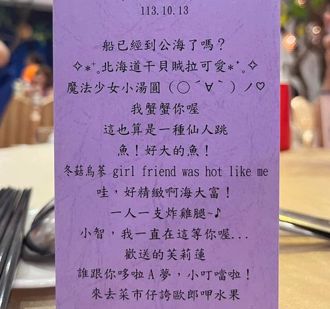 113.10.13
船已經到公海了嗎？
✧*⁺˳北海道干貝賊拉可愛*⁺˳✧
魔法少女小湯圓（◯´∀`）ノ♡
我蟹蟹你喔
這也算是一種仙人跳
魚！好大的魚！
冬菇烏蔘 girl friend was hot like me
哇，好精緻啊海大富！
一人一支炸雞腿~♪
小智，我一直在這等你喔...
歡送的芙莉蓮
誰跟你哆啦A夢，小叮噹啦！
來去菜市仔誇歐郎呷水果